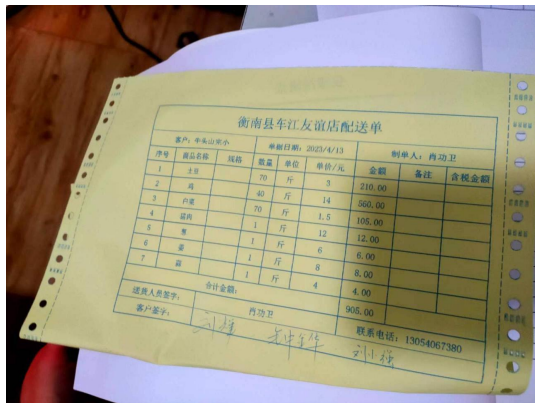 衡南县车江友谊店配送单
客户：牛头山完小 单据日期：2023/4/13 制单人：肖功卫
序号 商品名称 规格 数量 单位 单价/元 金额 备注 含税金额
1 土豆 70 斤 3 210.00
2 鸡 40 斤 14 560.00
3 70 斤 1.5 105.00
4 1 斤 12 12.00
5 葱 1 斤 6 6.00
6 姜 1 斤 8 8.00
7 蒜 1 斤 4 4.00
合计金额： 905.00
送货人员签字： 肖功卫 联系电话：13054067380
客户签字：